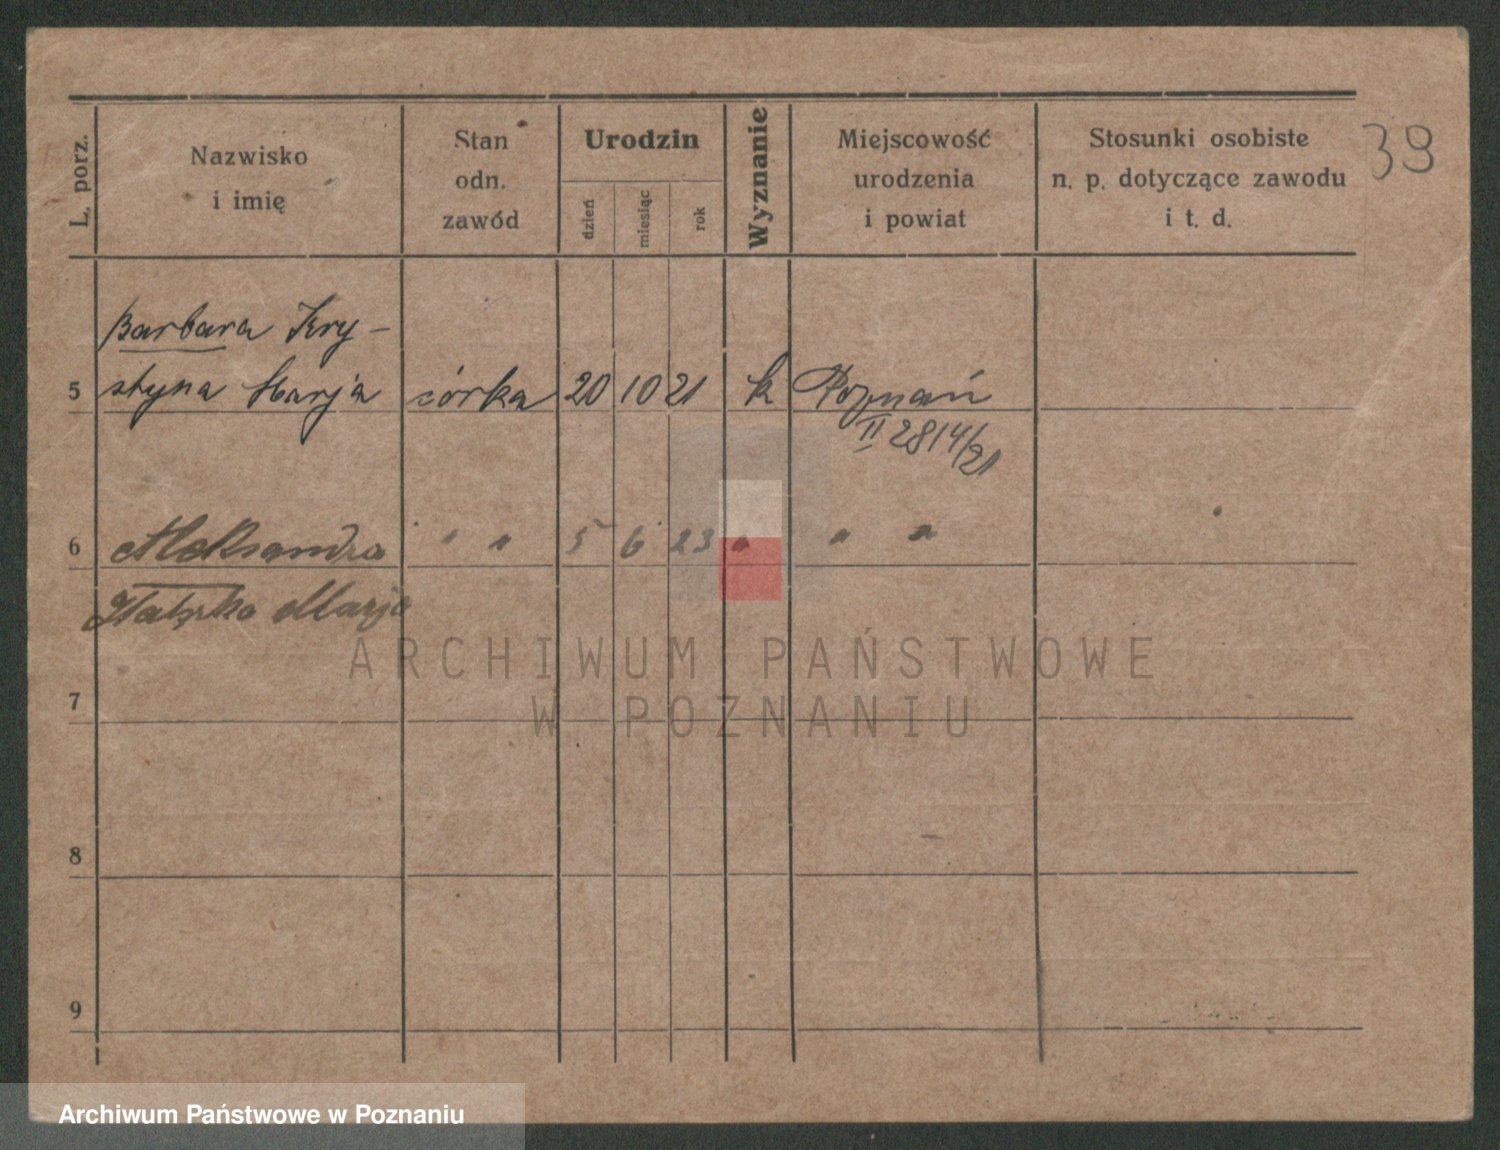 39
L. porz.
Nazwisko
i imię
Stan
odn.
zawód
Urodzin
dzień
miesiąc
rok
Wyznanie
Miejscowość
urodzenia
i powiat
Stosunki osobiste
n. p. dotyczące zawodu
i t. d.
Barbara Kry-
5 styna Marja córka 20 10 21 k Poznań
II 2814/21
6 Aleksandra " " 5 6 23 " " "
Marja
ARCHIWUM PAŃSTWOWE
W POZNANIU
7
8
9
Archiwum Państwowe w Poznaniu